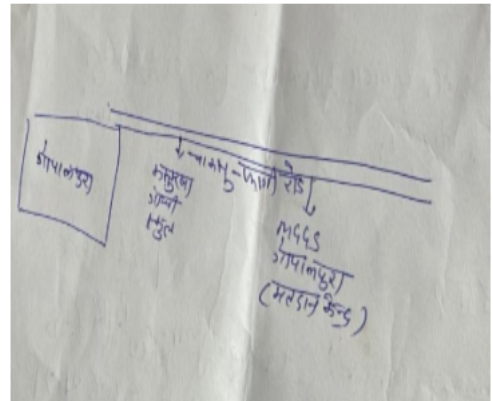 गोपालपुरा
चाकसु-फागी रोड
कस्तुरबा
गांधी
स्कुल
MGGS
गोपालपुरा
(मतदान केन्द्र)